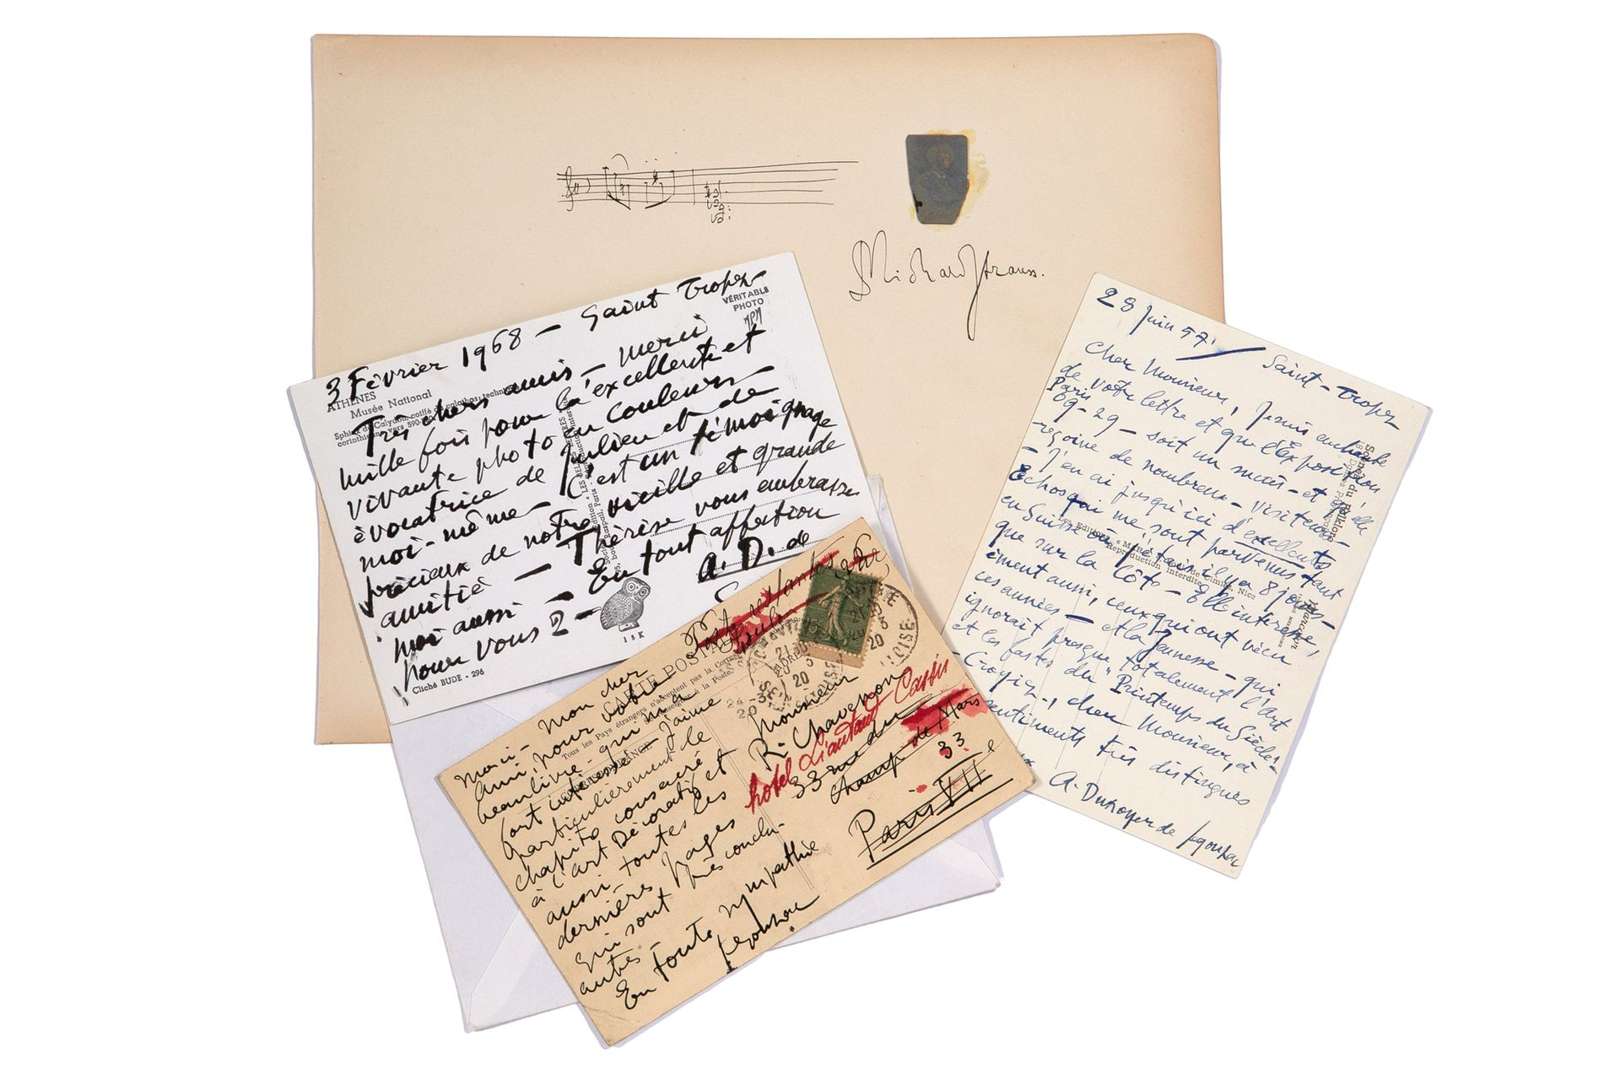 Richard Strauss.
3 Février 1968 — Saint Tropez
VÉRITABLE
PHOTO
ATHÈNES
Musée National
Très chers amis — merci
mille fois pour l'excellente et
vivante photo en couleurs —
évocatrice de Julien et de
moi-même — C'est un témoignage
précieux de notre vieille et grande
amitié — Thérèse vous embrasse
moi aussi — En tout affection
pour vous 2 — A. D. de
Cliché BUDE - 296
CARTE POSTALE
Merci — Mon cher
ami pour votre
beau livre qui m'a
fort intéressé — J'aime
particulièrement le
chapitre consacré
à l'art Décoratif et
aussi toutes les
dernières pages
qui sont
autres —
En toute sympathie
Segonzac
Monsieur
R. Chavenon
hôtel Lieutaud Cassis
33 rue du
Champ de Mars
33
Paris VII e
28 Juin 57. Saint-Tropez
Cher Monsieur, Je suis enchanté
de votre lettre et que l'Exposition
Paris
09-29 — soit un succès — et qu'elle
reçoive de nombreux visiteurs —
J'en ai jusqu'ici d'excellents
Echos qui me sont parvenus tant
en Suisse où j'étais il y a 8 jours —
que sur la Côte — Elle intéresse
aussi, ceux qui ont vécu
ces années — et la Jeunesse — qui
ignorait presque totalement l'art
et les fastes du "Printemps du Siècle —
Croyez, cher Monsieur, à
sentiments très distingués
A. Dunoyer de Segonzac